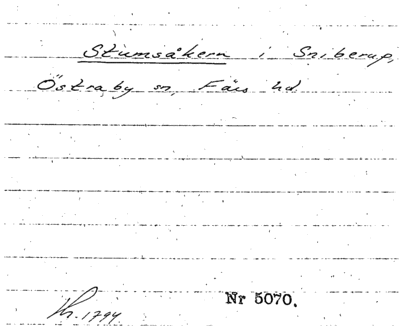 Stumsåkern i Sniberup,
Östraby sn, Färs hd
Nr 5070.
Kh. 1794.